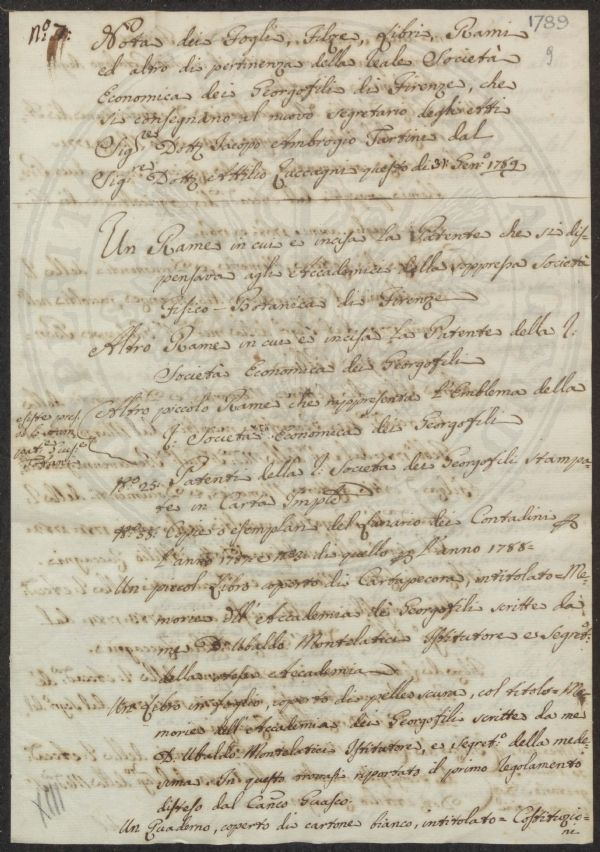 N.º 7:
1789
9
Nota dei Fogli, Filze, Libri, Rami
ed altro di pertinenza della Reale Società
Economica dei Georgofili di Firenze, che
si consegnano al nuovo Segretario degli Atti
Sig.re Dott. Jacopo Ambrogio Tartini dal
Sig.re Dott. Attilio Zuccagni questo dì 31 Gen.º 1789
Un Rame in cui è incisa la Patente che si di-
spensava agli Accademici della soppressa Società
Fisico-Botanica di Firenze
Altro Rame in cui è incisa la Patente della R:
Società Economica dei Georgofili
Altro piccolo Rame che rappresenta l'Emblema della
R: Società Economica dei Georgofili
esiste pres-
so lo Stam-
Gius.e
N.º 25: Patenti della R: Società dei Georgofili stampa-
te in Carta
N.º 38: Copie o esemplari del Lunario dei Contadini
l'anno 1787: e N.º 31 di quello l'anno 1788=
Un piccol Libro coperto di Cartapecora, intitolato= Me-
morie dell'Accademia de Georgofili scritte da
me D. Ubaldo Montelatici Istitutore e Segret.º
della stessa Accademia
Un Libro in foglio, coperto di pelle scura, col titolo= Me-
morie dell'Accademia dei Georgofili scritte da me
D. Ubaldo Montelatici Istitutore, e Segret.º della mede-
sima. In questo trovasi riportato il primo regolamento
disteso dal Can.co Guasco
Un Quaderno, coperto di cartone bianco, intitolato= Costituzio-
ni
XIII